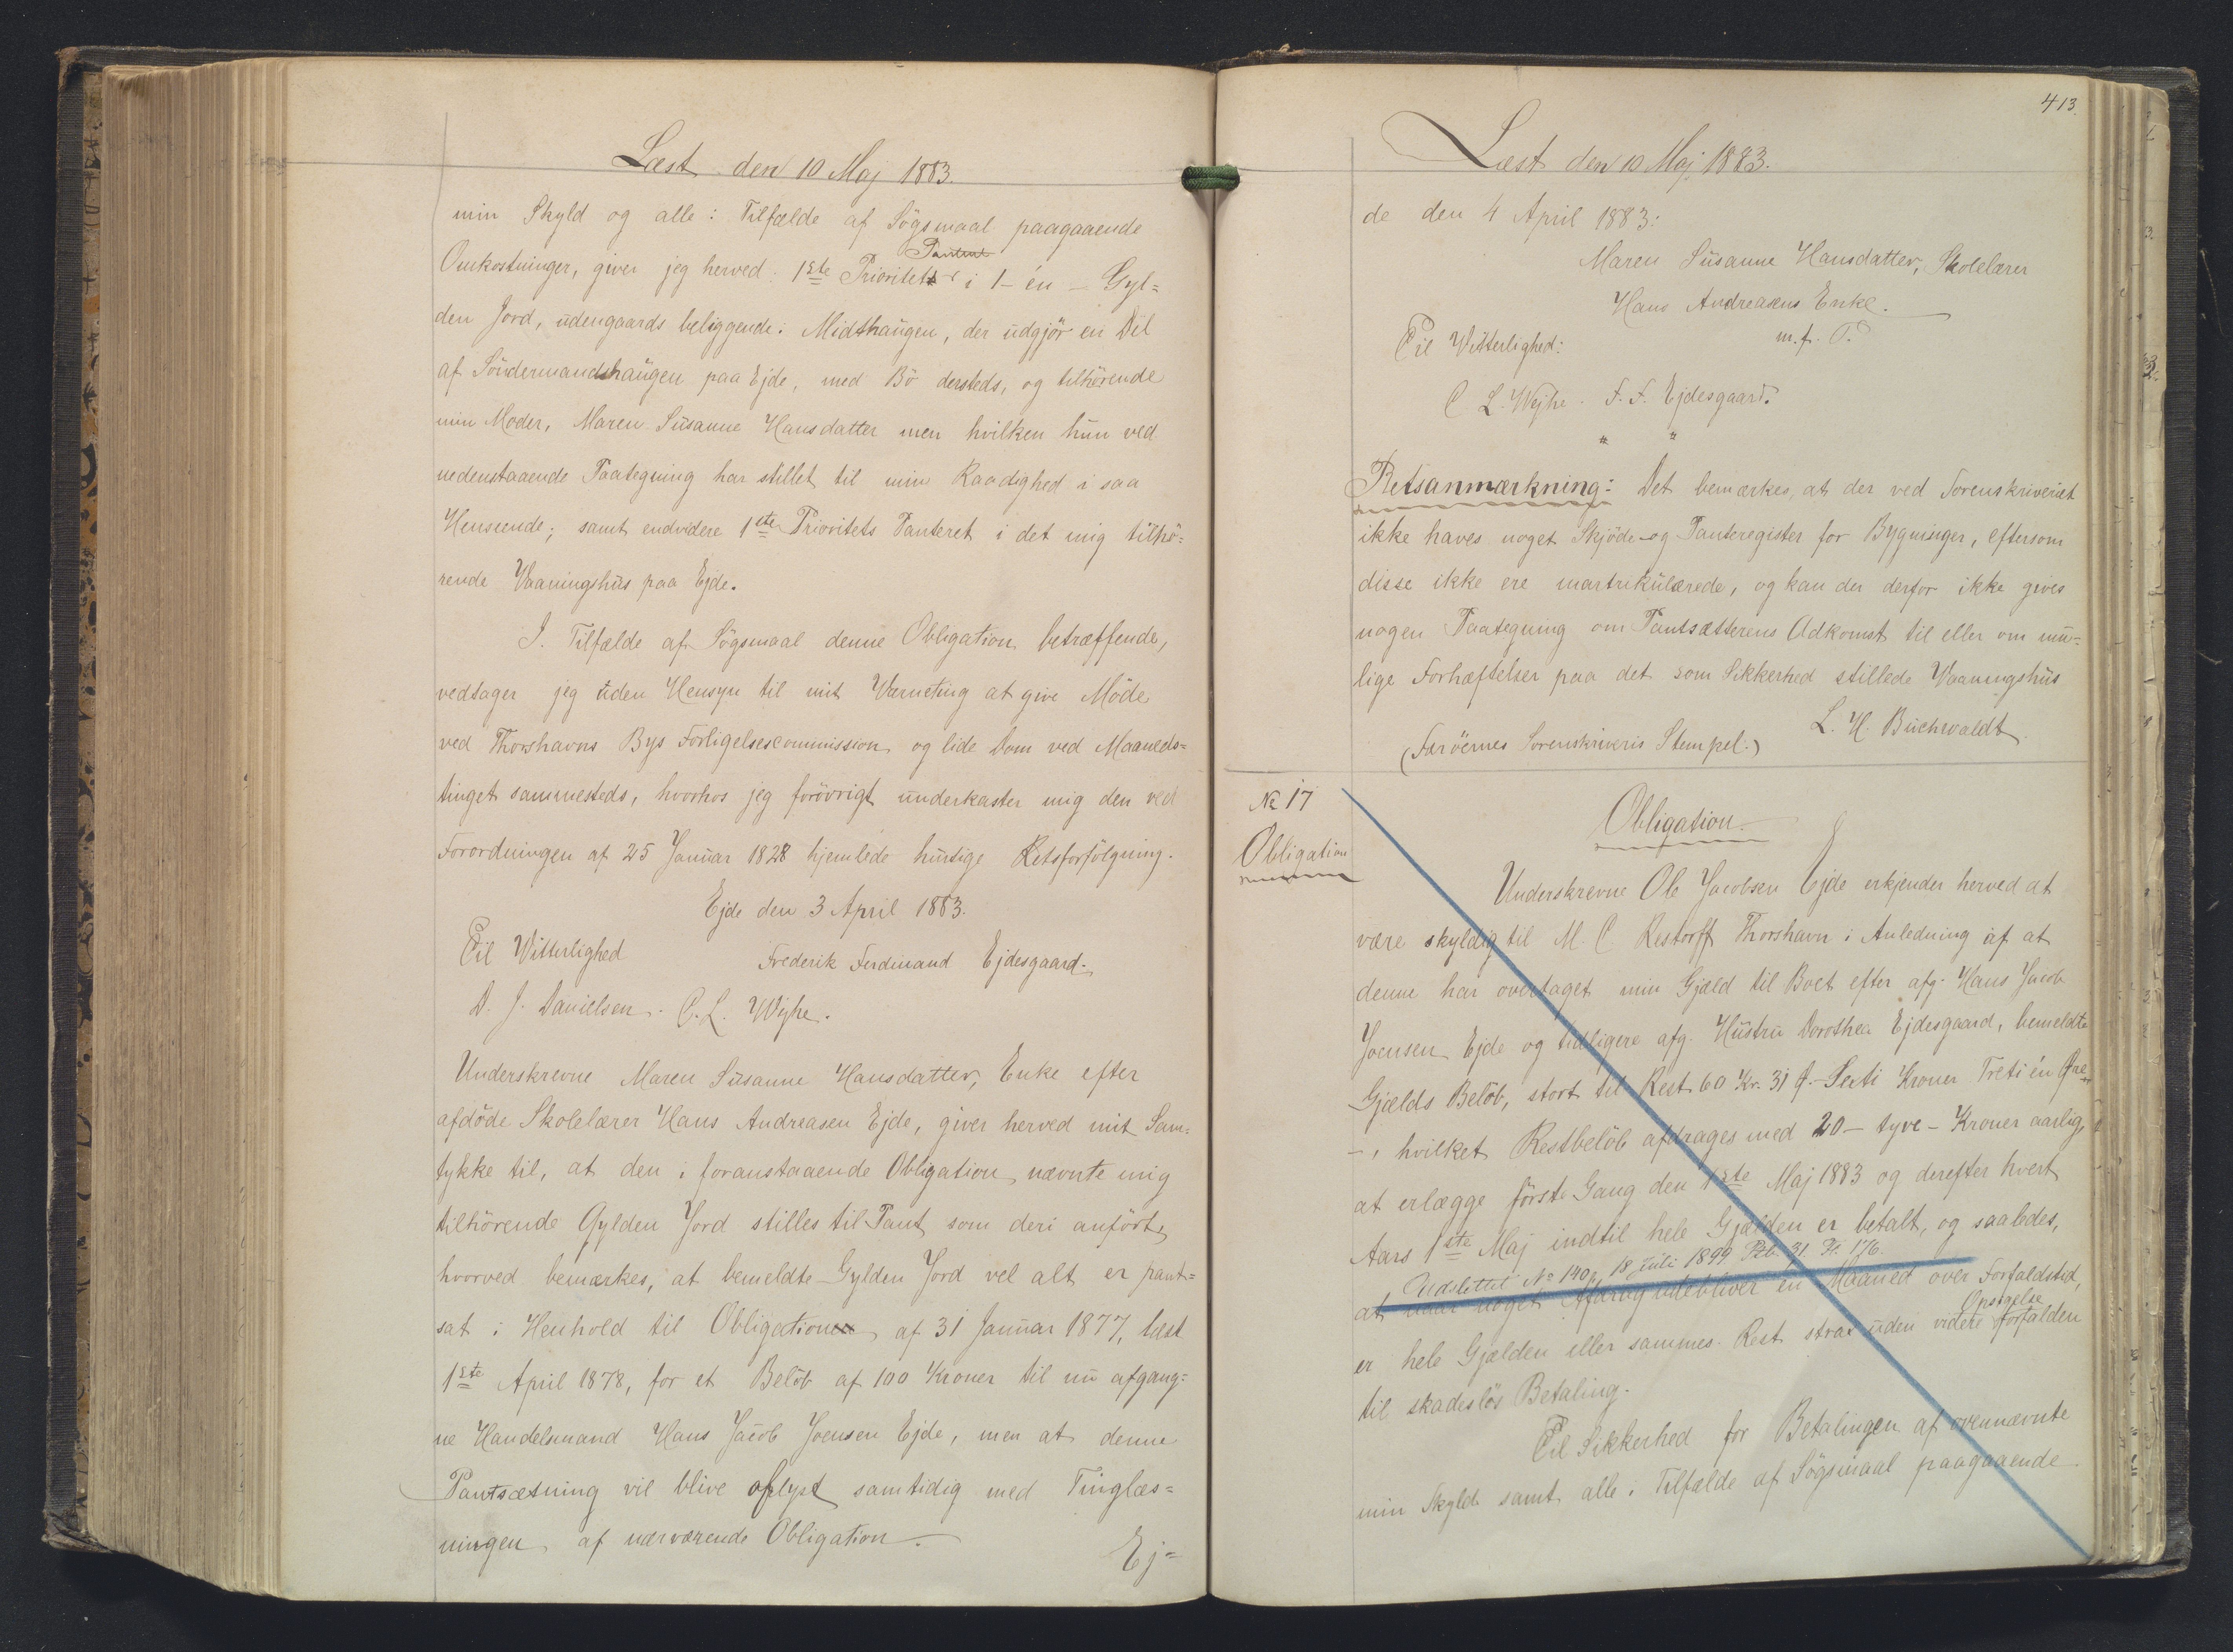 Læst den 10 Maj 1883.
min Skyld og alle i Tilfælde af Sögsmaal paagaaende
Panteret
Omkostninger, giver jeg herved 1ste Prioritets i 1 - én - Gyl=
den Jord, udengaards beliggende i Midthaugen, der udgjör en Del
af Söndermandshaugen paa Ejde, med Bö dersteds, og tilhörende
min Moder, Maren Susanne Hansdatter men hvilken hun ved
nedenstaaende Paategning har stillet til min Raadighed i saa
Henseende; samt endvidere 1ste Prioritets Panteret i det mig tilhö=
rende Vaaningshus paa Ejde.
I Tilfælde af Sögsmaal denne Obligation betræffende,
vedtager jeg uden Hensyn til mit Værneting at give Möde
ved Thorshavns Bys Forligelsescommission og lide Dom ved Maaneds=
tinget sammesteds, hvorhos jeg forövrigt underkaster mig den ved
Forordningen af 25 Januar 1828 hjemlede hurtige Retsforfölgning.
Ejde den 3 April 1883.
Til Vitterlighed
Frederik Ferdinand Ejdesgaard.
D. J. Danielsen. C. L. Wejhe.
Underskrevne Maren Susanne Hansdatter, Enke efter
afdöde Skolelærer Hans Andreasen Ejde, giver herved mit Sam=
tykke til, at den i foranstaaende Obligation nævnte mig
tilhörende Gylden Jord stilles til Pant som deri anfört,
hvorved bemærkes, at bemeldte Gylden Jord vel alt er pant=
sat i Henhold til Obligationen af 31 Januar 1877, læst
1ste April 1878, for et Belöb af 100 Kroner til nu afgang=
ne Handelsmand Hans Jacob Joensen Ejde, men at denne
Pantsætning vil blive aflyst samtidig med Tinglæs=
ningen af nærværende Obligation.
Ej=
413.
Læst den 10 Maj 1883.
de den 4 April 1883:
Maren Susanne Hansdatter, Skolelærer
Hans Andreasens Enke.
m. f. P.
Til Vitterlighed:
C L. Wejhe. F. F. Ejdesgaard.
" "
Retsanmærkning: Det bemærkes, at der ved Sorenskriveriet
ikke haves noget Skjöde- og Panteregister for Bygninger, eftersom
disse ikke ere martrikulærede, og kan der derfor ikke gives
nogen Paategning om Pantsætterens Adkomst til eller om mu=
lige Forhæftelser paa det som Sikkerhed stillede Vaaningshus
L. H. Buchwaldt
(Færöernes Sorenskriveris Stempel.)
No 17
Obligation
Obligation.
Underskrevne Ole Jacobsen Ejde erkjender herved at
være skyldig til M. C Restorff Thorshavn i Anledning af at
denne har overtaget min Gjæld til Boet efter afg. Hans Jacob
Joensen Ejde og tidligere afg. Hustru Dorothea Ejdesgaard, bemeldte
Gjælds Belöb, stort til Rest 60 Kr. 31 Ø. - Sexti Kroner Treti én Øre
-, hvilket Restbelöb afdrages med 20 - tyve - Kroner aarlig,
at erlægge förste Gang den 1ste Maj 1883 og derefter hvert
Aars 1ste Maj indtil hele Gjælden er betalt, og saaledes,
Udslettet No 140, 18 Juli 1899 Ptb. 31 Fl. 176.
at naar noget Afdrag udebliver en Maaned over Forfaldstid,
Opsigelse
er hele Gjælden eller sammes Rest strax uden videre forfalden
til skadeslös Betaling.
Til Sikkerhed for Betalingen af ovennævnte
min Skyld samt alle i Tilfælde af Sögsmaal paagaaende